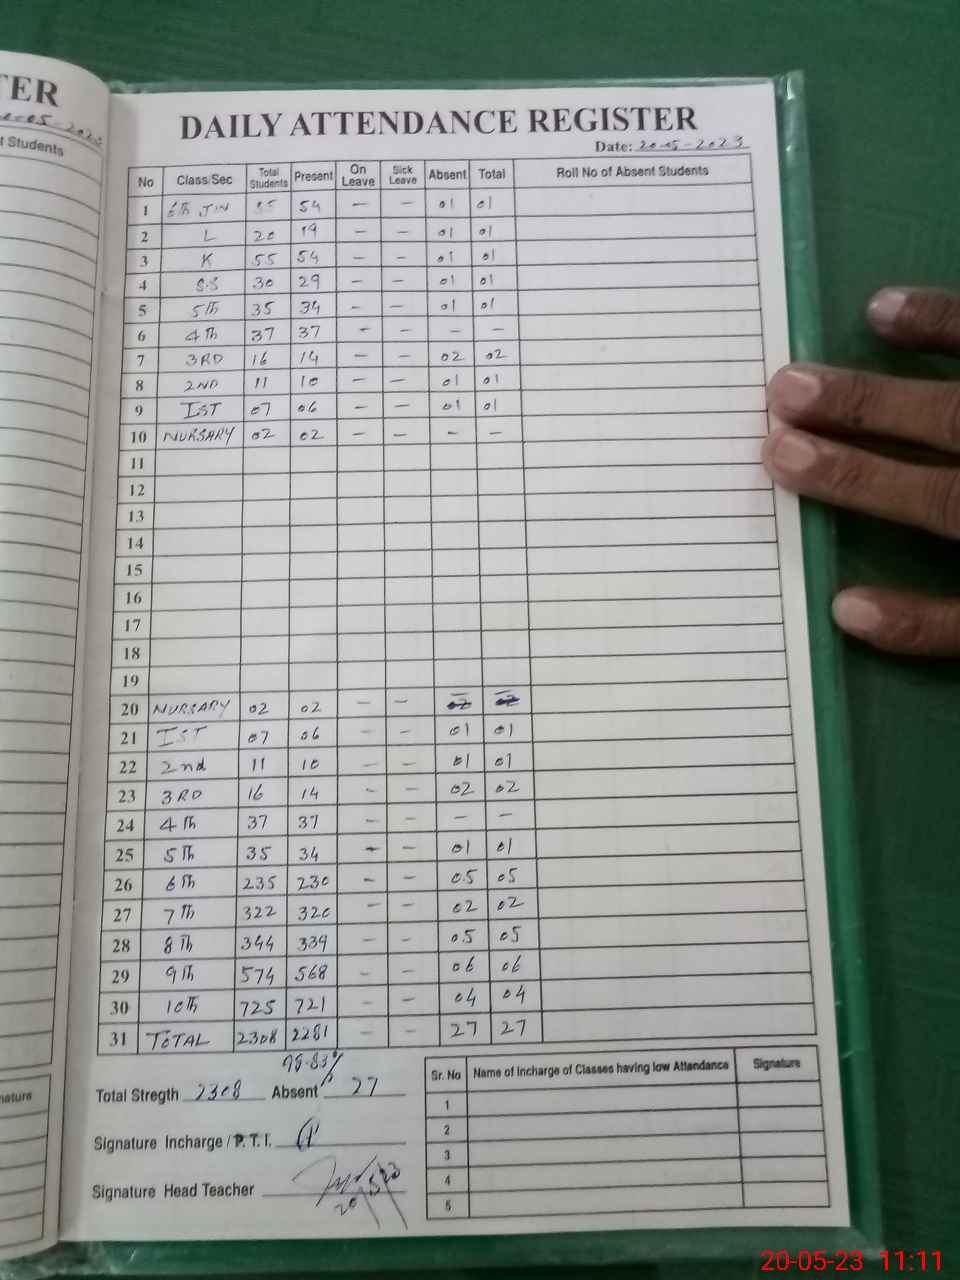 TER
20-05-2023
t Students
nature
DAILY ATTENDANCE REGISTER
Date: 20-05-2023
No Class/Sec Total Students Present On Leave Sick Leave Absent Total Roll No of Absent Students
1 6th JIN 55 54 — — 01 01
2 L 20 19 — — 01 01
3 K 55 54 — — 01 01
4 S.S 30 29 — — 01 01
5 5th 35 34 — — 01 01
6 4th 37 37 — — — —
7 3RD 16 14 — — 02 02
8 2ND 11 10 — — 01 01
9 IST 07 06 — — 01 01
10 NURSARY 02 02 — — — —
11
12
13
14
15
16
17
18
19
20 NURSARY 02 02 — — — —
21 IST 07 06 — — 01 01
22 2nd 11 10 — — 01 01
23 3RD 16 14 — — 02 02
24 4th 37 37 — — — —
25 5th 35 34 — — 01 01
26 6th 235 230 — — 05 05
27 7th 322 320 — — 02 02
28 8th 344 339 — — 05 05
29 9th 574 568 — — 06 06
30 10th 725 721 — — 04 04
31 TOTAL 2308 2281 — — 27 27
98.83%
Total Stregth 2308 Absent 27
Signature Incharge / P.T.I.
Signature Head Teacher
20/5/23
Sr. No Name of Incharge of Classes having low Attendance Signature
1
2
3
4
5
20-05-23 11:11